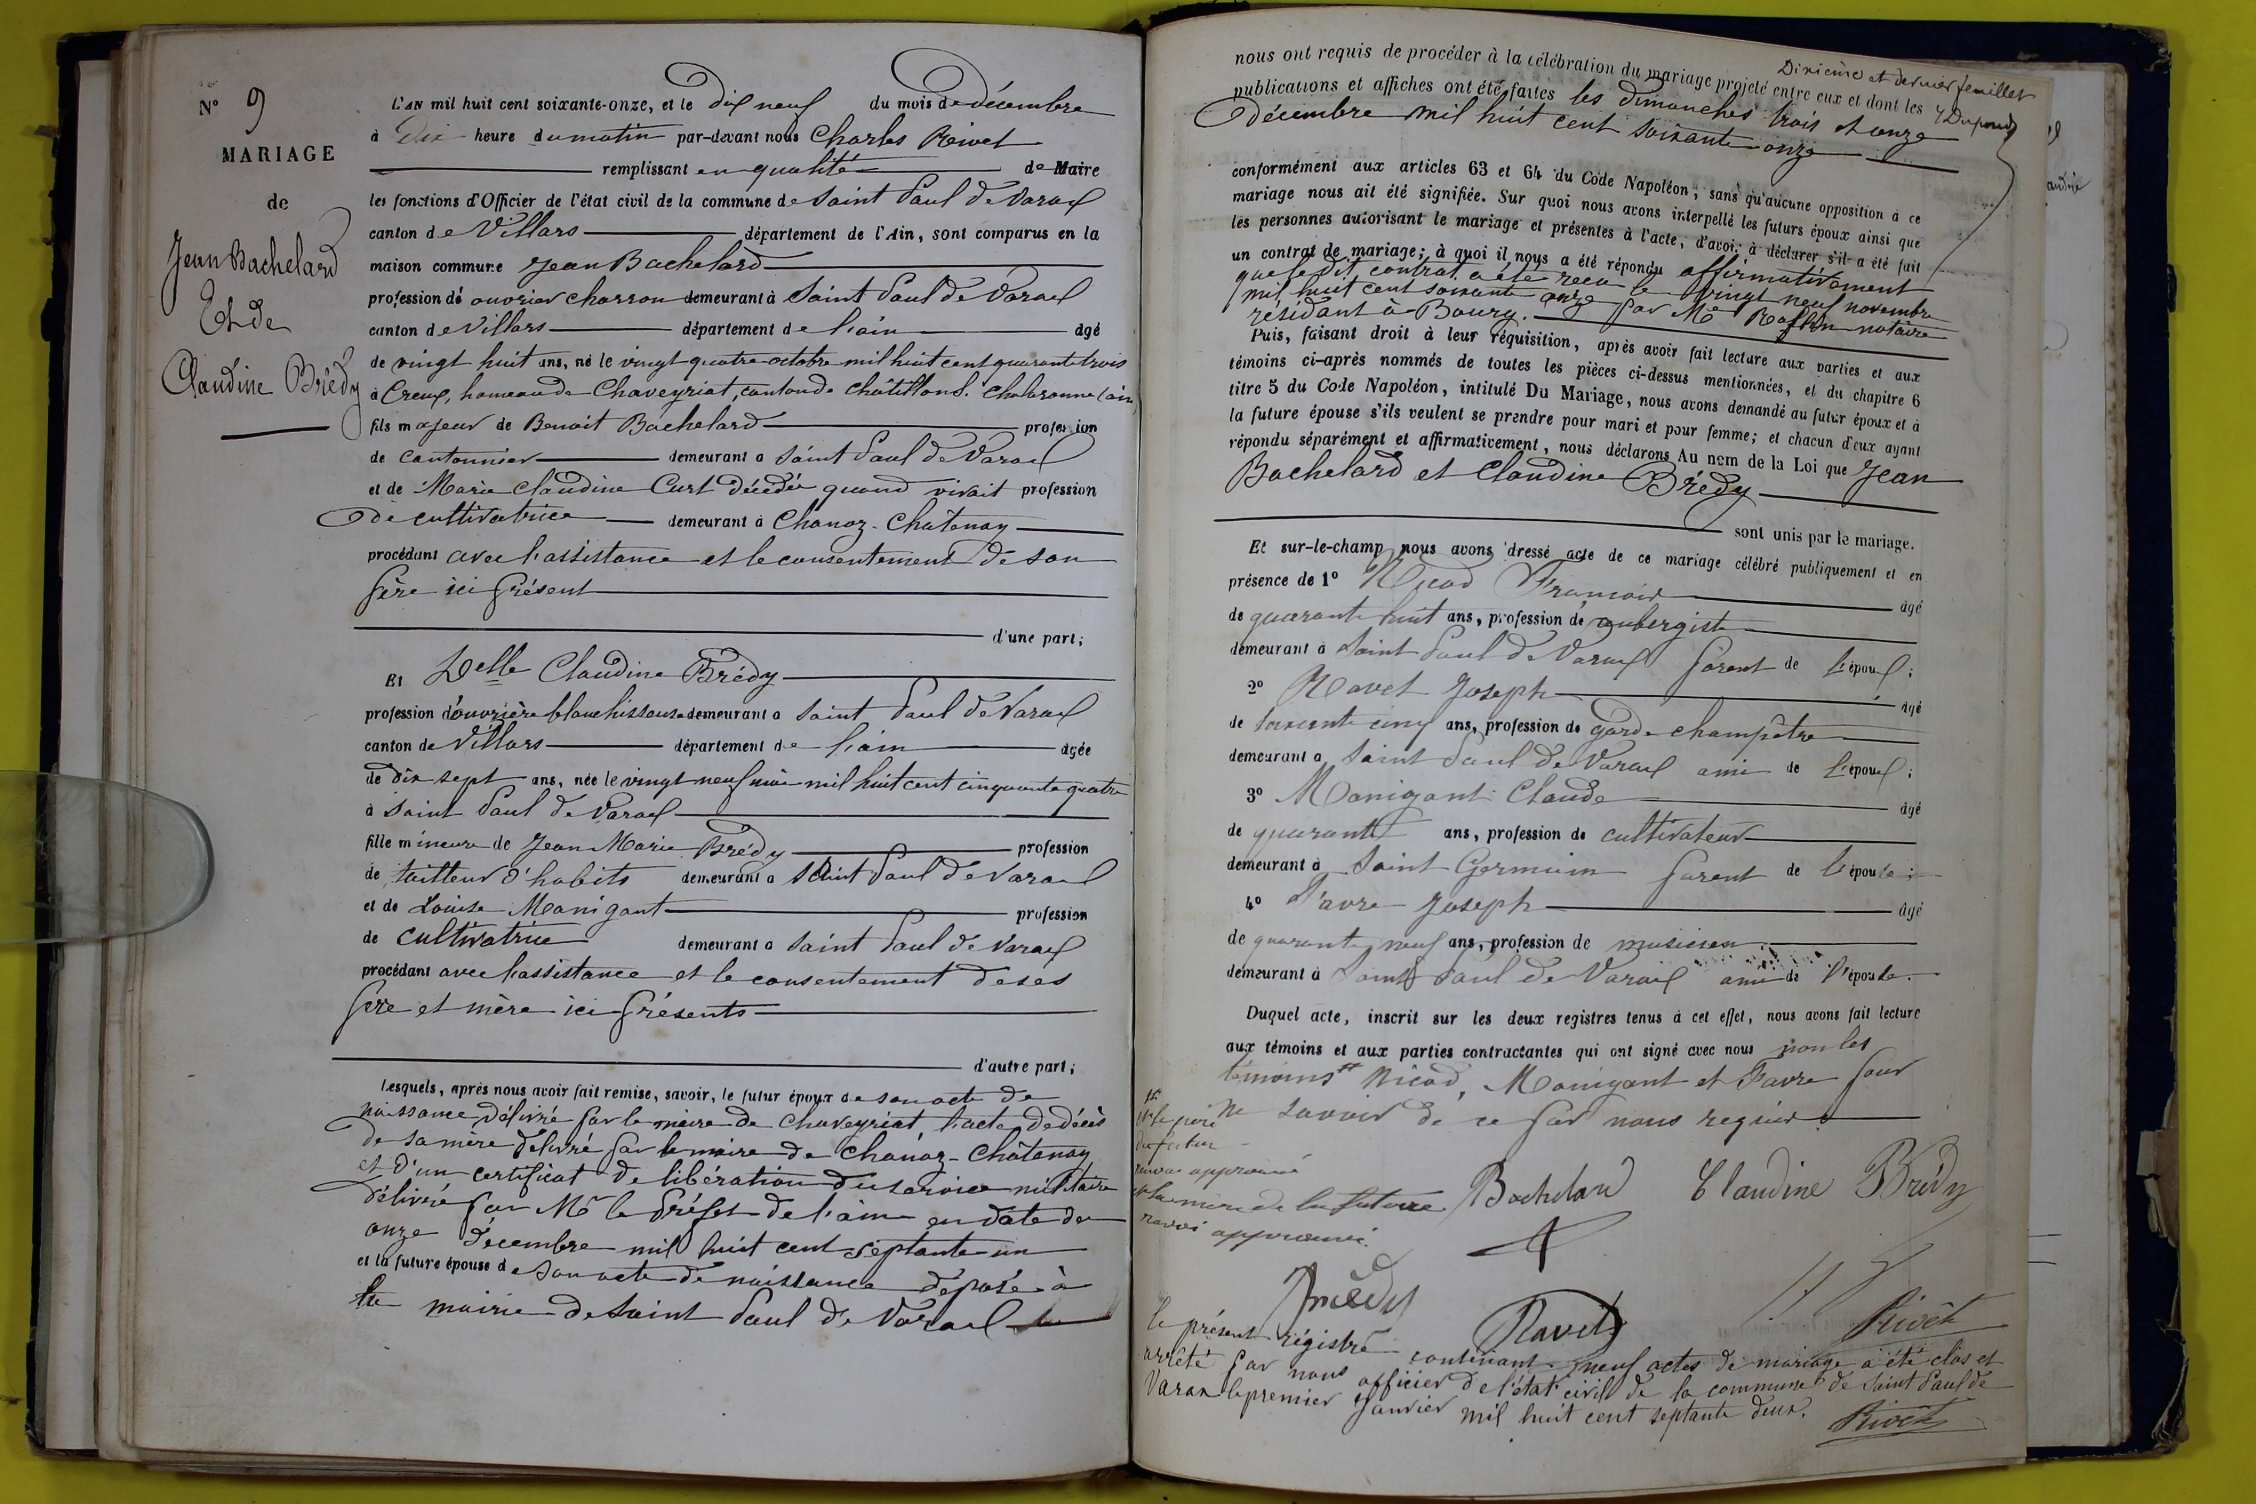 N° 9
MARIAGE
de
Jean Bachelard
Et de
Claudine Brédy
L'AN mil huit cent soixante-onze, et le dix neuf du mois de décembre
à dix heure du matin par-devant nous Charles Rivet
remplissant en qualité de Maire
les fonctions d'Officier de l'état civil de la commune de Saint Paul de Varax
canton de Villars département de l'Ain, sont comparus en la
maison commune Jean Bachelard
profession de ouvrier charron demeurant à Saint Paul de Varax
canton de Villars département de l'ain âgé
de vingt huit ans, né le vingt quatre octobre mil huit cent quarante trois
à Creux, hameau de Chaveyriat, canton de Châtillon s. Chalaronne (ain)
fils majeur de Benoit Bachelard profession
de cantonnier demeurant à Saint Paul de Varax
et de Marie Claudine Curt décédée quand vivait profession
de cultivatrice demeurant à Chanoz-Châtenay
procédant avec l'assistance et le consentement de son
père ici présent
d'une part;
Et Delle Claudine Brédy
profession d'ouvrière blanchisseuse demeurant à Saint Paul de Varax
canton de Villars département de l'ain âgée
de dix sept ans, née le vingt neuf mai mil huit cent cinquante quatre
à Saint Paul de Varax
fille mineure de Jean Marie Brédy profession
de tailleur d'habits demeurant à Saint Paul de Varax
et de Louise Manigant profession
de cultivatrice demeurant à Saint Paul de Varax
procédant avec l'assistance et le consentement de ses
père et mère ici présents
d'autre part;
Lesquels, après nous avoir fait remise, savoir, le futur époux de son acte de
naissance délivré par le maire de Chaveyriat l'acte de décès
de sa mère délivré par le maire de Chanoz-Châtenay
et d'un certificat de libération du service militaire
délivré par Mr le Préfet de l'ain en date du
onze décembre mil huit cent septante un
et la future épouse de son acte de naissance déposé à
la mairie de Saint Paul de Varax
Dixième et dernier feuillet
Dupond
nous ont requis de procéder à la célébration du mariage projeté entre eux et dont les
publications et affiches ont été faites les dimanches trois et onze
décembre mil huit cent soixante onze
conformément aux articles 63 et 64 du Code Napoléon, sans qu'aucune opposition à ce
mariage nous ait été signifiée. Sur quoi nous avons interpellé les futurs époux ainsi que
les personnes autorisant le mariage et présentes à l'acte, d'avoir à déclarer s'il a été fait
un contrat de mariage; à quoi il nous a été répondu affirmativement
que le dit contrat a été reçu le vingt neuf novembre
mil huit cent soixante onze par Me notaire
résidant à Bourg.
Puis, faisant droit à leur réquisition, après avoir fait lecture aux parties et aux
témoins ci-après nommés de toutes les pièces ci-dessus mentionnées, et du chapitre 6
titre 5 du Code Napoléon, intitulé Du Mariage, nous avons demandé au futur époux et à
la future épouse s'ils veulent se prendre pour mari et pour femme; et chacun d'eux ayant
répondu séparément et affirmativement, nous déclarons Au nom de la Loi que Jean
Bachelard et Claudine Brédy
sont unis par le mariage.
Et sur-le-champ nous avons dressé acte de ce mariage célébré publiquement et en
présence de 1° Nicod François âgé
de quarante huit ans, profession de aubergiste
demeurant à Saint Paul de Varax parent de l'époux;
2° Ravet Joseph âgé
de soixante cinq ans, profession de garde champêtre
demeurant à Saint Paul de Varax ami de l'époux;
3° Manigant Claude âgé
de quarante ans, profession de cultivateur
demeurant à Saint Germain parent de l'épouse;
4° Favre Joseph âgé
de quarante neuf ans, profession de musicien
demeurant à Saint Paul de Varax ami de l'épouse.
Duquel acte, inscrit sur les deux registres tenus à cet effet, nous avons fait lecture
aux témoins et aux parties contractantes qui ont signé avec nous non les
témoins Nicod, Manigant et Favre pour
ne savoir de ce par nous requis
et le père
du futur
renvoi approuvé
et la mère de la future
renvoi approuvé.
Bachelard Claudine Brédy
Brédy
Ravet
Rivet
le présent régistre contenant neuf actes de mariage a été clos et
arrêté par nous officier de l'état civil de la commune de Saint Paul de
Varax le premier Janvier mil huit cent septante deux.
Rivet